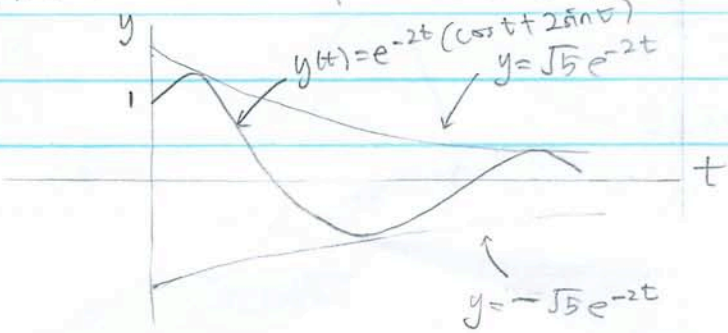 y
y(t) = e^{-2t} (cos t + 2 sin t)
y = √5 e^{-2t}
1
t
y = -√5 e^{-2t}